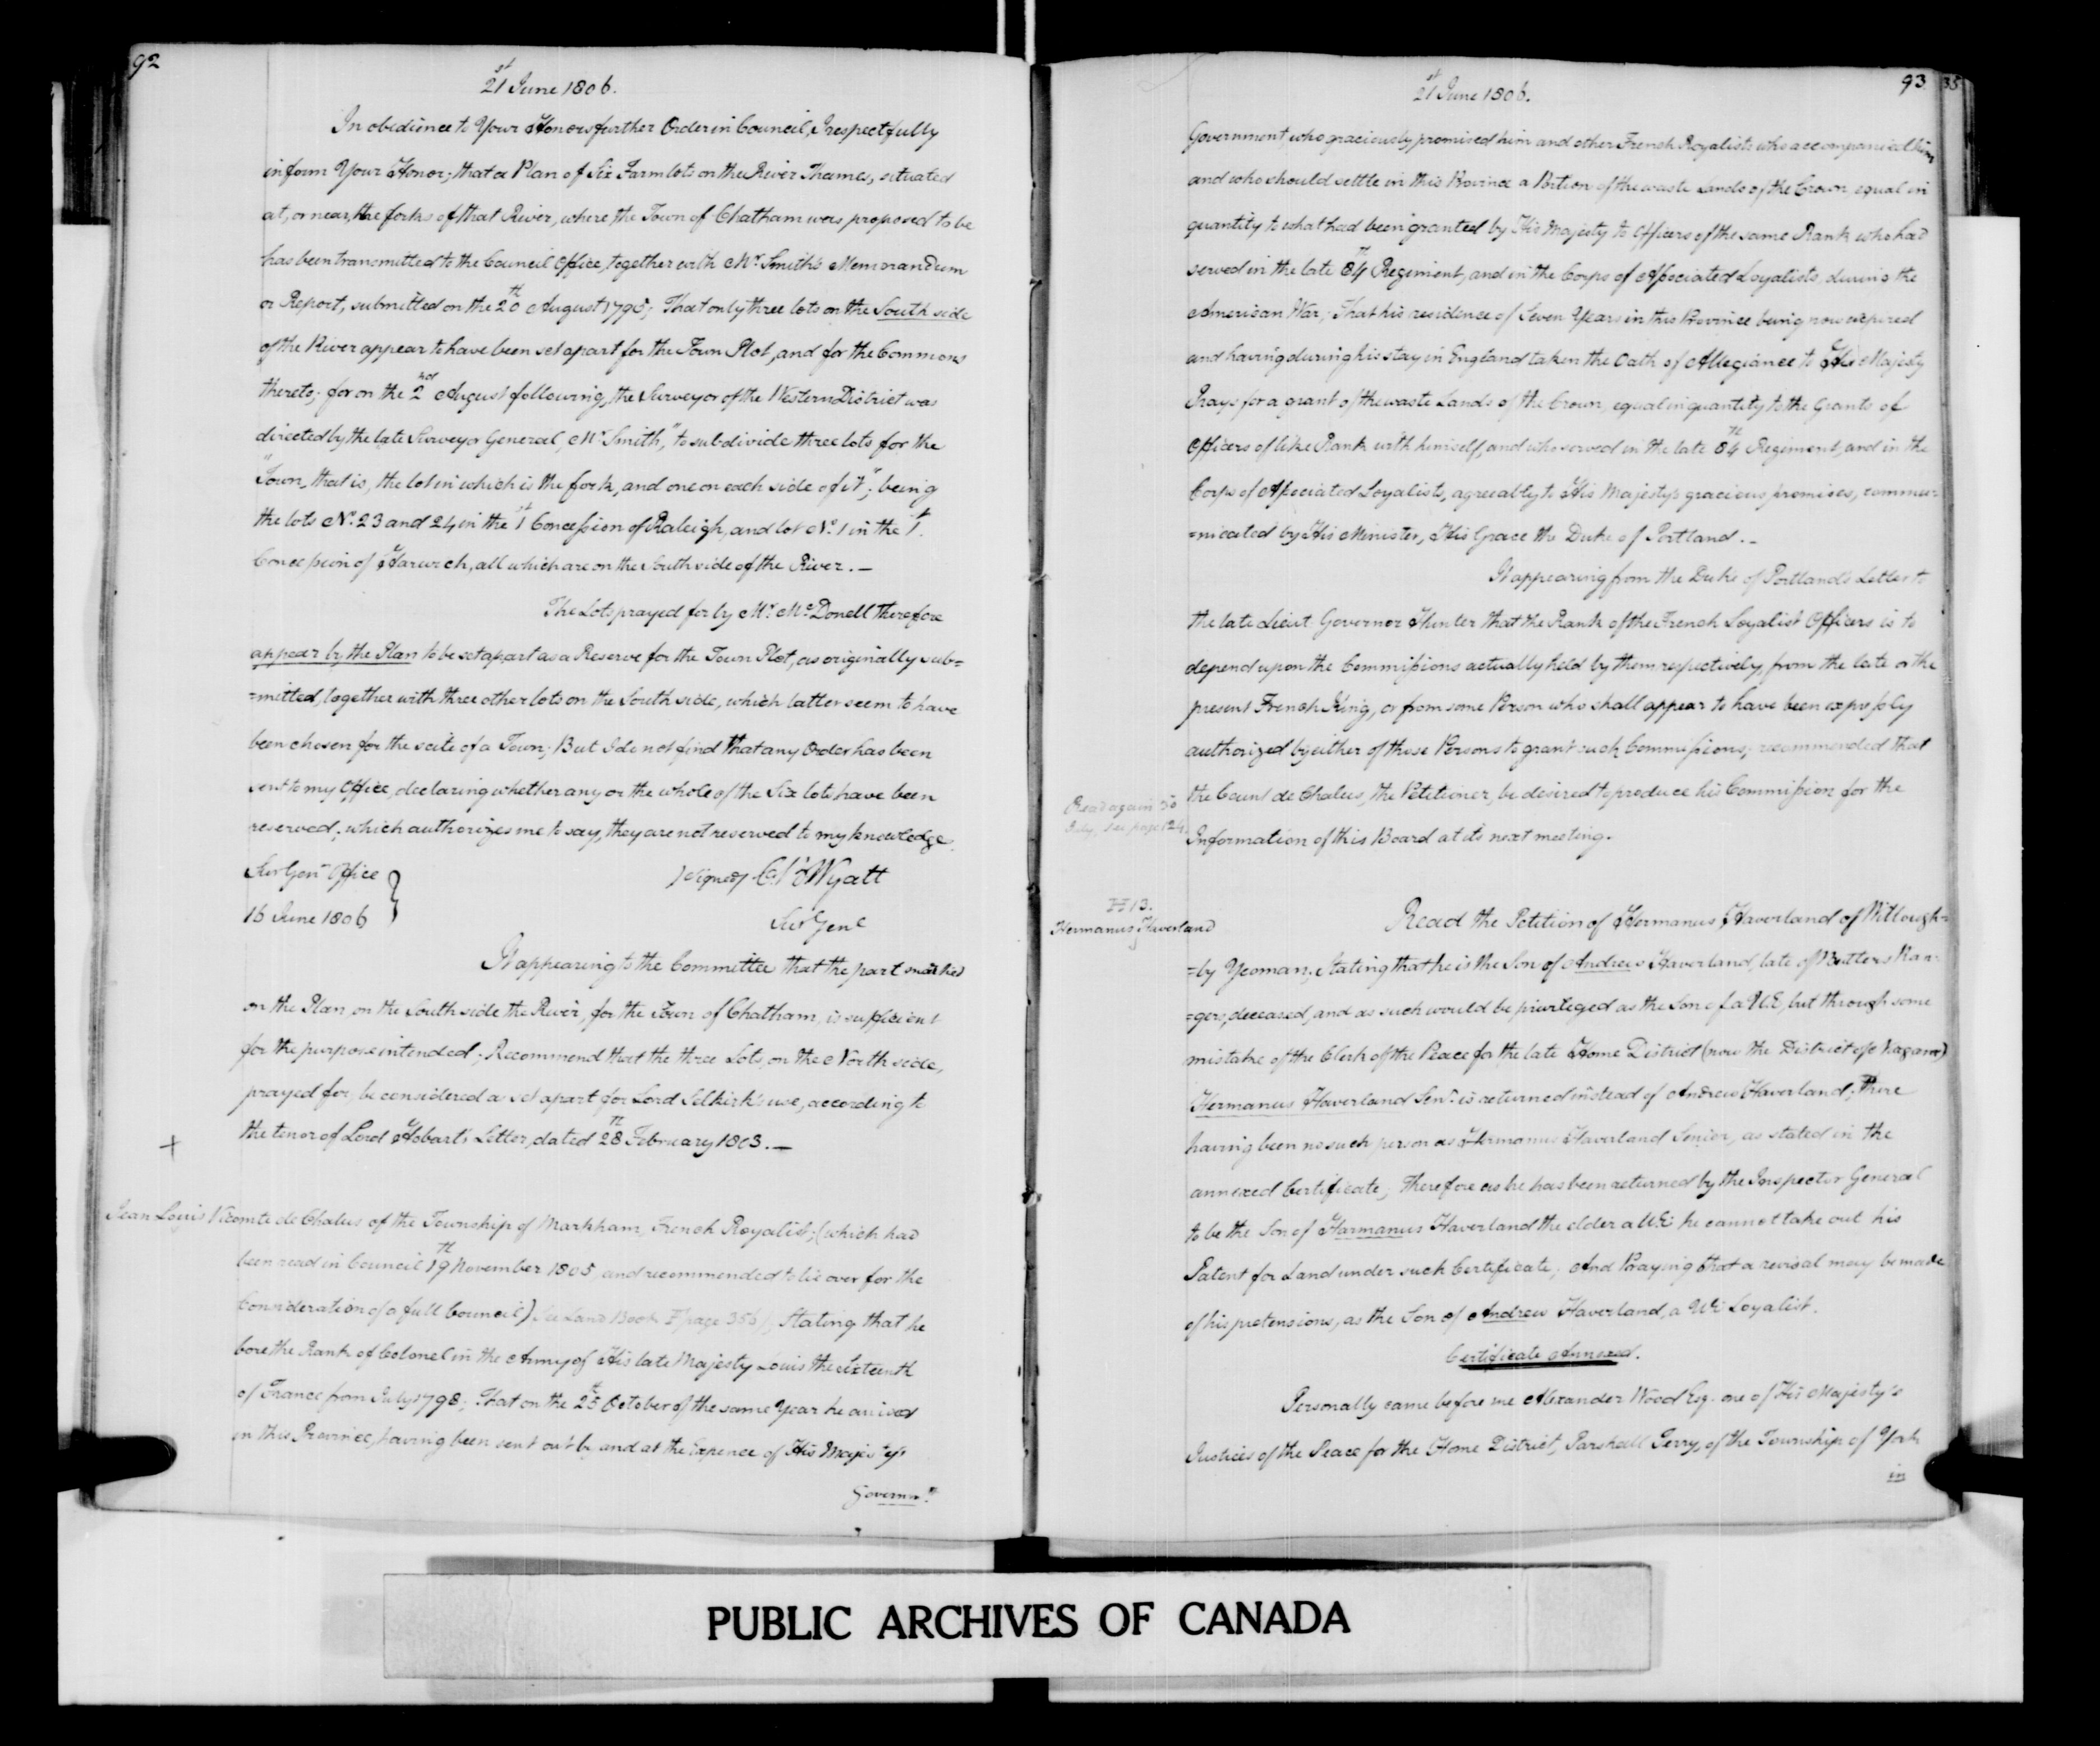 92
21st June 1806.
In obedience to Your Honors further Order in Council, I respectfully
inform Your Honor; that a Plan of Six Farm lots on the River Thames, situated
at, or near, the forks of that River, where the Town of Chatham was proposed to be
has been transmitted to the Council Office, together with Mr. Smith's Memorandum
or Report, submitted on the 20th August 1795; That only three lots on the South side
of the River appear to have been set apart for the Town Plot, and for the Commons
thereto; for on the 2nd August following, the Surveyor of the Western District was
directed by the late Surveyor General, Mr Smith, "to subdivide three lots for the
"Town, that is, the lot in which is the fork, and one on each side of it"; being
the lots No. 23 and 24 in the 1st Concession of Raleigh, and lot No. 1 in the 1st.
Concession of Harwich, all which are on the South side of the River. —
The Lots prayed for by Mr. McDonell therefore
appear by the Plan to be set apart as a Reserve for the Town Plot, as originally sub=
=mitted, together with three other lots on the South side, which latter seem to have
been chosen for the scite of a Town; But I do not find that any Order has been
sent to my Office, declaring whether any or the whole of the Six lots have been
reserved, which authorizes me to say, they are not reserved to my knowledge.
Sur Genl Office
16 June 1806
signed Wyatt
Sur Genl
It appearing to the Committee that the part marked
on the Plan on the South side the River, for the Town of Chatham, is sufficient
for the purpose intended; Recommend that the three Lots, on the North side,
prayed for, be considered as set apart for Lord Selkirk's use, according to
the tenor of Lord Hobart's Letter, dated 28th February 1803. —
+
Jean Louis Vicomte de Chalus of the Township of Markham, French Royalist; (which had
been read in Council 19th November 1805, and recommended to lie over for the
Consideration of a full Council) See Land Book F page 356), Stating that he
bore the Rank of Colonel in the Army of His late Majesty Louis the Sixteenth
of France from July 1798; That on the 25th October of the same Year he arrived
in this Province, having been sent out by, and at the Expence of His Majesty's
Governmt.
21st June 1806.
93
35
Government, who graciously promised him and other French Royalists who accompanied him
and who should settle in this Province a Portion of the waste Lands of the Crown, equal in
quantity to what had been granted by His Majesty to Officers of the same Rank who had
served in the late 84th Regiment, and in the Corps of Associated Loyalists, during the
American War; That his residence of Seven Years in this Province being now expired
and having during his stay in England taken the Oath of Allegiance to His Majesty
Prays for a grant of the waste Lands of the Crown, equal in quantity to the Grants of
Officers of like Rank with himself, and who served in the late 84th Regiment, and in the
Corps of Associated Loyalists, agreeably to His Majesty's gracious promises, commu=
=nicated by His Minister, His Grace the Duke of Portland. —
It appearing from the Duke of Portland's Letter to
the late Lieut. Governor Hunter that the Rank of the French Loyalist Officers is to
depend upon the Commissions actually held by them respectively, from the late or the
present French King, or from some Person who shall appear to have been expressly
authorized by either of those Persons to grant such Commissions; recommended that
the Count de Chalus, the Petitioner, be desired to produce his Commission for the
Information of this Board at its next meeting.
Read again 30
July, see page 124.
H 13.
Hermanus Haverland
Read the Petition of Hermanus Haverland of Willough=
=by Yeoman; Stating that he is the Son of Andrew Haverland, late of Butlers Ran=
=gers, deceased, and as such would be priviledged as the Son of a U.E, but through some
mistake of the Clerk of the Peace for the late Home District (now the District of Niagara)
Hermanus Haverland Senr. is returned instead of Andrew Haverland; There
having been no such person as Hermanus Haverland Senior, as stated in the
annexed Certificate; Therefore as he has been returned by the Inspector General
to be the Son of Harmanus Haverland the elder a U.E. he cannot take out his
Patent for Land under such Certificate; And Praying that a revisal may be made
of his pretensions, as the Son of Andrew Haverland, a UE Loyalist.
Certificate Annexed.
Personally came before me Alexander Wood Esq. one of His Majesty's
Justices of the Peace for the Home District, Parshall Terry, of the Township of York
in
PUBLIC ARCHIVES OF CANADA